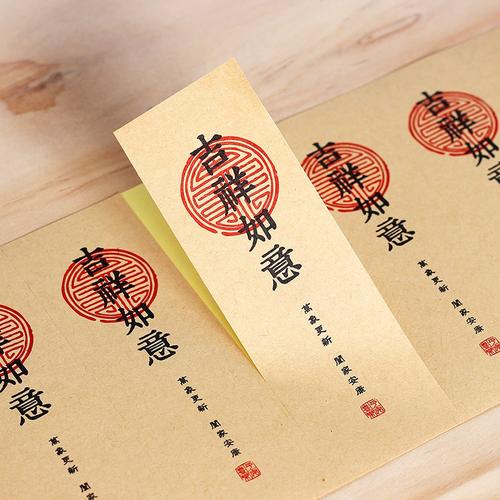 如意
萬象更新 闔
吉祥如意
萬象更新 闔家安康
吉祥如意
萬象更新 闔家安康
吉祥如意
萬象更新 闔家安康
吉祥如